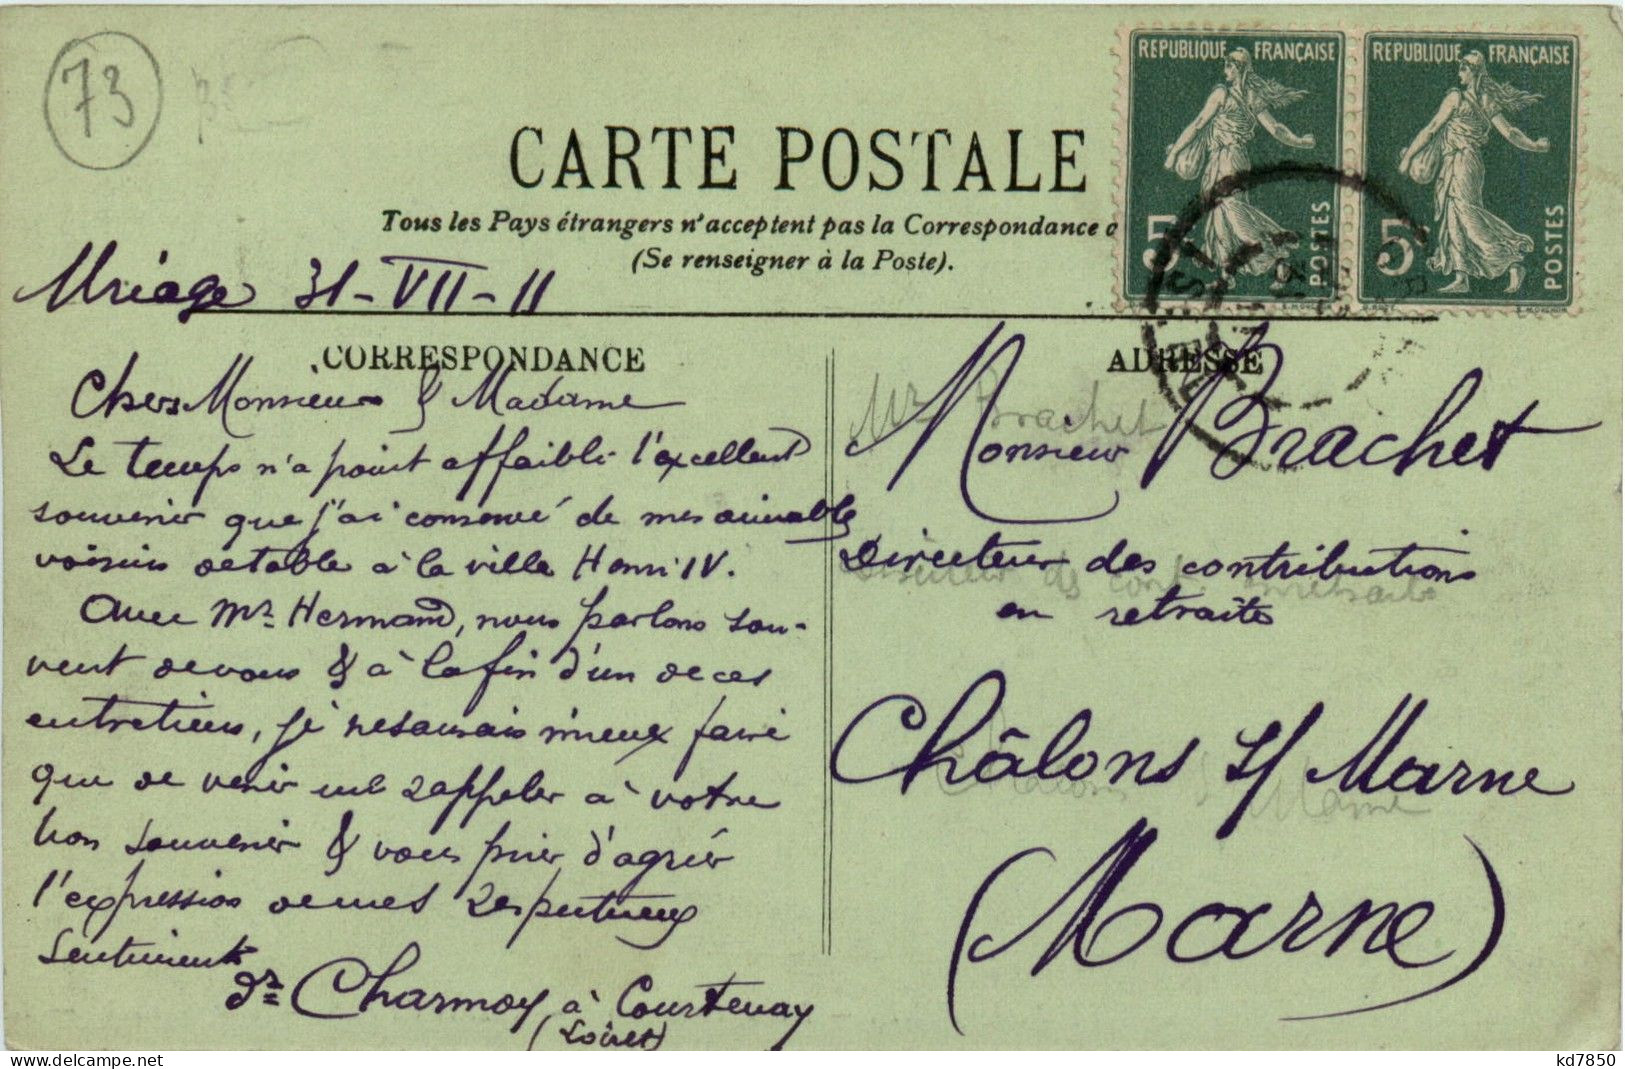 73
CARTE POSTALE
Tous les Pays étrangers n'acceptent pas la Correspondance
(Se renseigner à la Poste).
RÉPUBLIQUE FRANÇAISE
5
POSTES
RÉPUBLIQUE FRANÇAISE
5
POSTES
Uriage 31-VII-11
CORRESPONDANCE
Chers Monsieur & Madame
Le temps n'a point affaibli l'excellent
souvenir que j'ai conservé de mes aimables
voisins de table à la ville Henri IV.
Avec Mr Hermand, nous parlons sou-
vent de vous & à la fin d'un de ces
entretiens, je ne saurais mieux faire
que de venir me rappeler à votre
bon souvenir & vous prier d'agréer
l'expression de mes respectueux
sentiments
Dr Charmoy à Courtenay
(Loiret)
ADRESSE
Mr Brachet
Monsieur Brachet
Directeur des contributions
en retraite
Directeur des cont en retraite
Châlons s/ Marne
Châlons s/ Marne
(Marne)
kd7850